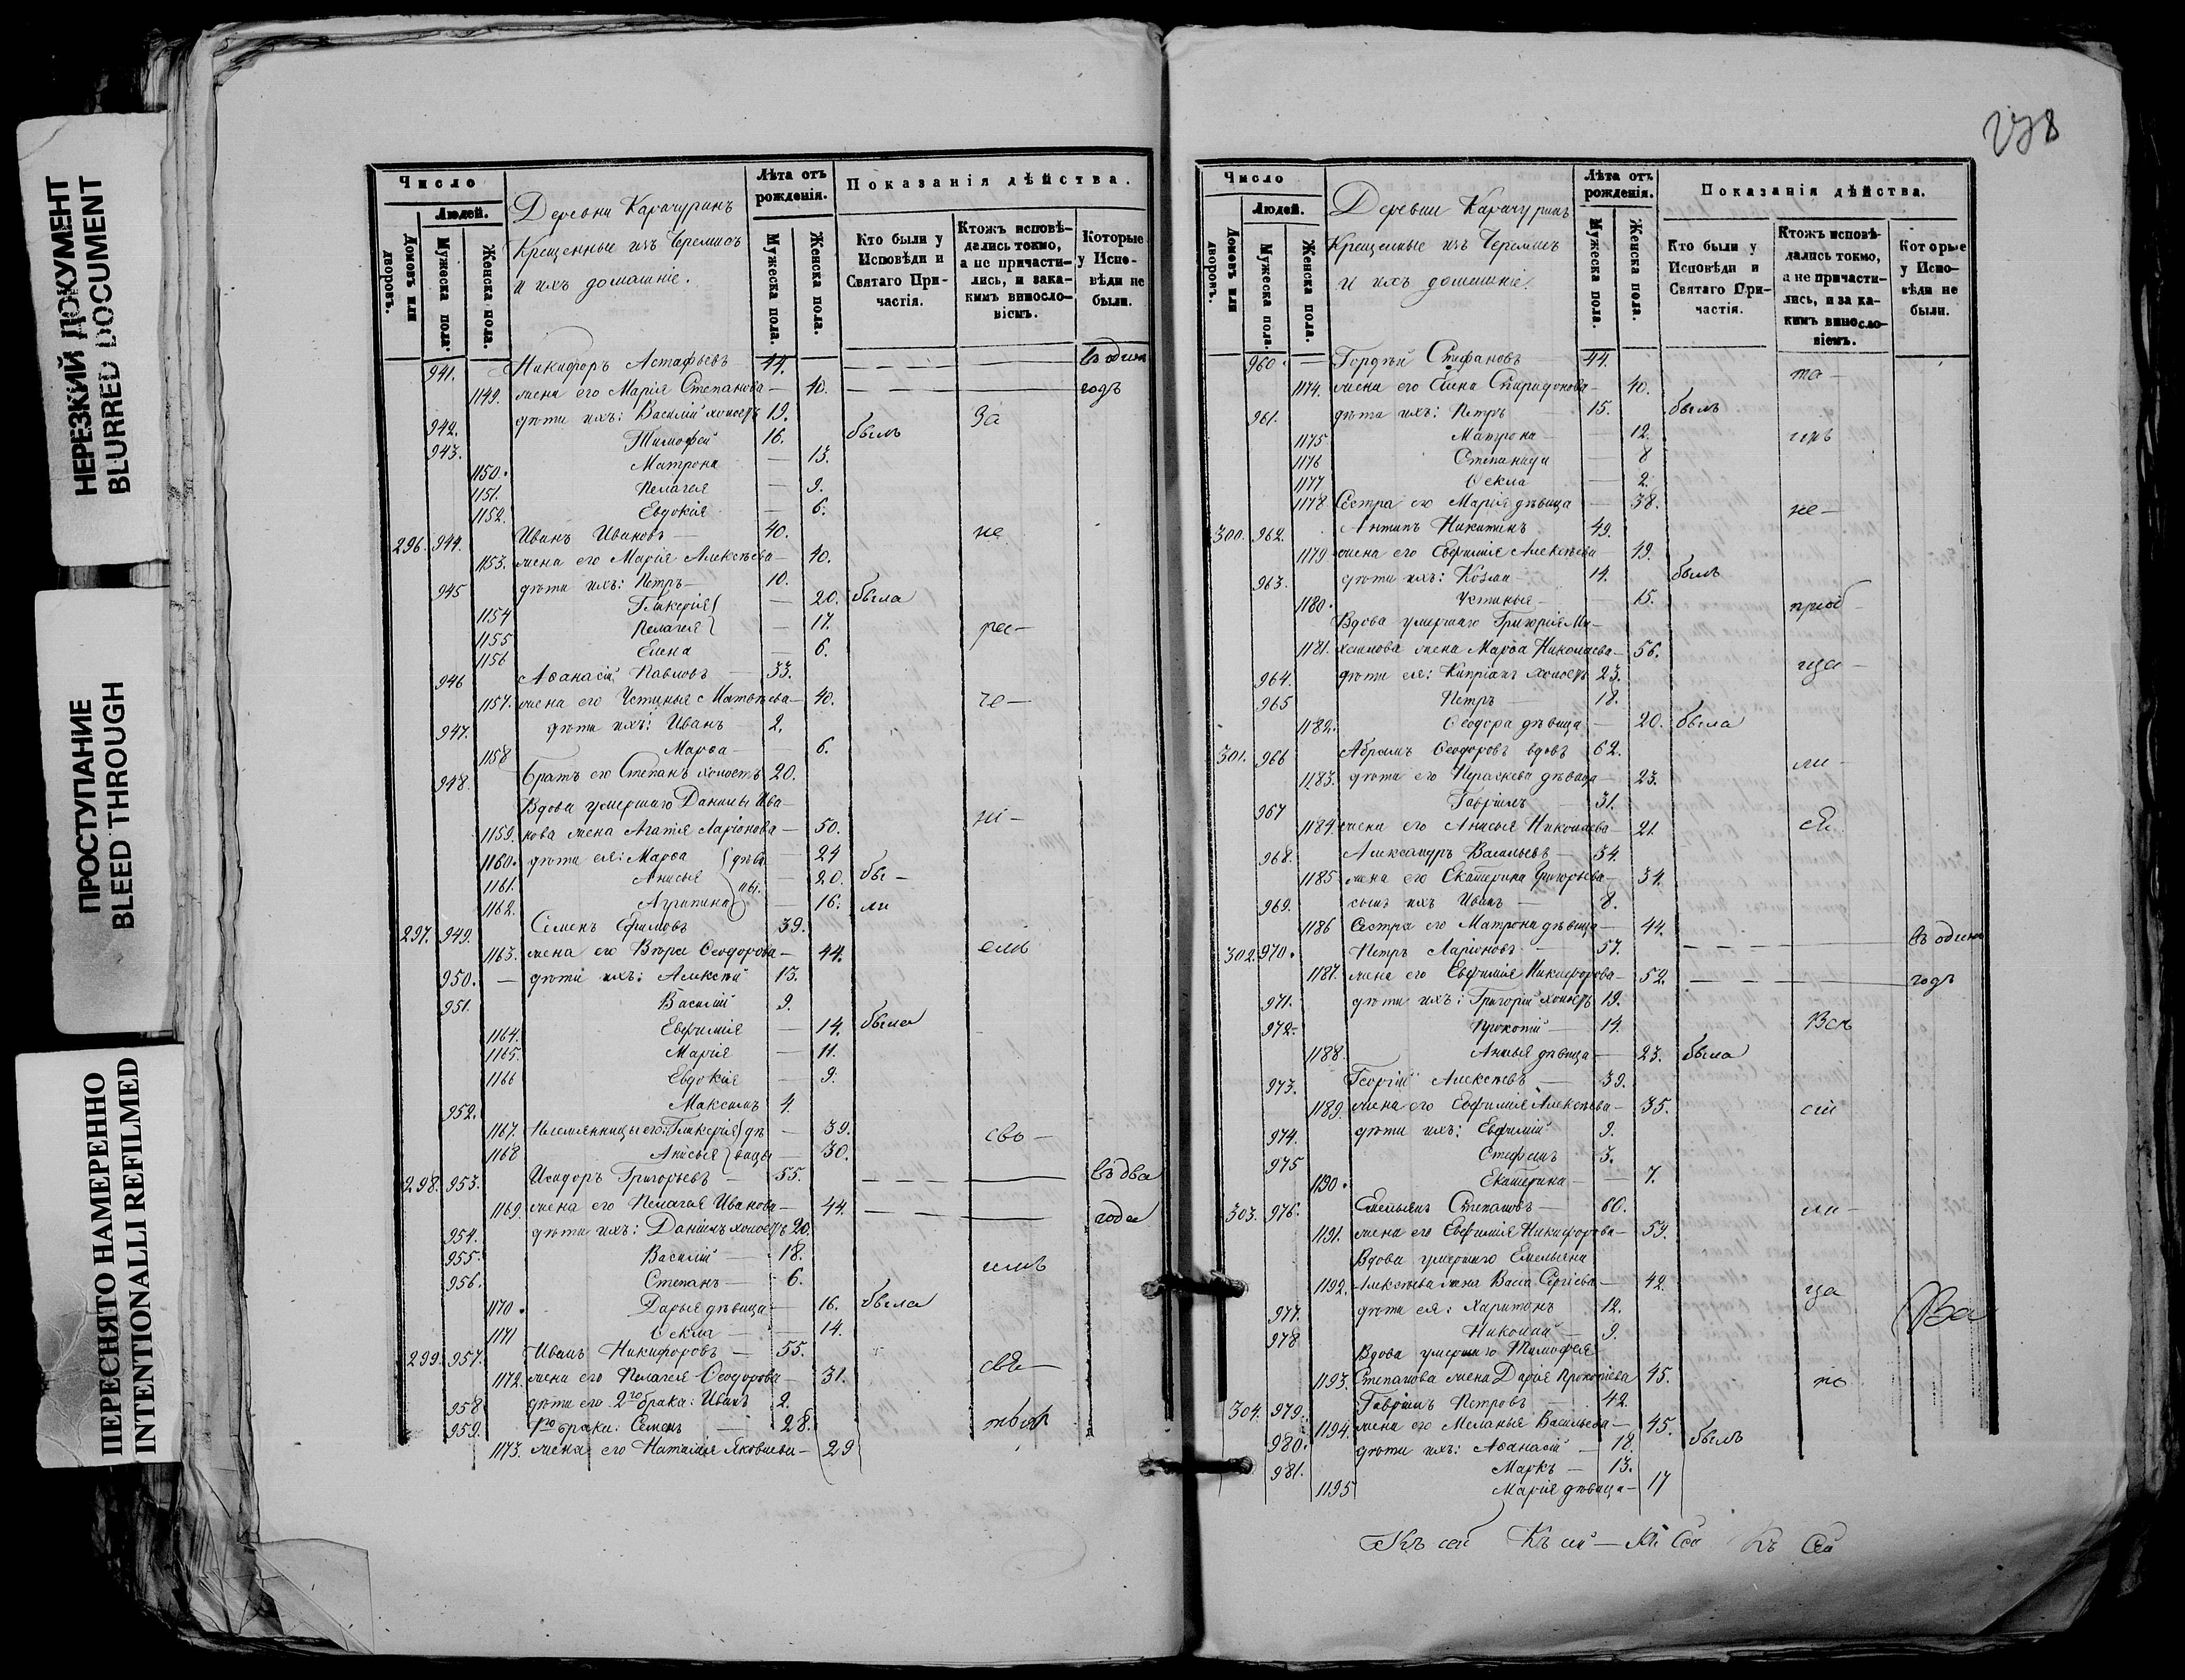 НЕРЕЗКИЙ ДОКУМЕНТ
BLURRED DOCUMENT
ПРОСТУПАНИЕ
BLEED THROUGH
ПЕРЕСНЯТО НАМЕРЕННО
INTENTIONALLI REFILMED
Число
Людей.
Домовъ или дворовъ.
Мужеска пола.
Женска пола.
Деревни Карачуринъ
Крещенные изъ Черемисъ
и ихъ домашніе.
Лѣта отъ рожденія.
Мужеска пола.
Женска пола.
Показанія дѣйства.
Кто были у Исповѣди и Святаго Причастія.
Ктожъ исповѣдались токмо, а не причастились, и закакимъ винословіемъ.
Которые у Исповѣди не были.
941. Никифоръ Астафьевъ 44. въ один
1149. жена его Марія Степанова — 40. годъ
942. дѣти ихъ: Василій холостъ 19. За
943. Тимофей 16. былъ
1150. Матрона — 13.
1151. Пелагея — 9.
1152. Евдокія — 6.
296. 944. Иванъ Ивановъ — 40. не
1153. жена его Марія Алексѣева — 40.
945 дѣти ихъ: Петръ — 10.
1154 Гликерія — 20. была
1155 Пелагея — 17. ра-
1156 Елена — 6.
946 Аѳанасій Павловъ — 33.
1157. жена его Устинья Матвѣева — 40. че-
947. дѣти ихъ: Иванъ 2.
1158 Марѳа — 6.
948. Братъ его Степанъ холостъ 20.
Вдова умершаго Данилы Ива-
1159. нова жена Агапія Ларіонова — 50. ні-
1160. дѣти ея: Марѳа дѣви — 24
1161. Анисья цы. — 20. бы-
1162. Агрипина — 16. ли
297. 949. Семенъ Ефимовъ 39.
1163. жена его Вѣра Ѳеодорова — 44. емъ
950. — дѣти ихъ: Алексѣй 13.
951. Василій 9.
1164. Евфимія — 14. была
1165. Марія — 11.
1166 Евдокія — 9.
952. Максимъ 4.
1167. Племянницы его: Гликерія дѣ — 39. сво-
1168 Анисья вицы — 30.
298. 953. Исидоръ Григорьевъ — 55. въ два
1169. жена его Пелагея Иванова — 44. года
954. дѣти ихъ: Даніилъ холостъ 20.
955. Василій — 18.
956. Степанъ — 6.
1170. Дарья дѣвица — 16. была
1171 Ѳекла — 14.
299. 957. Иванъ Никифоровъ — 55.
1172. жена его Пелагея Ѳеодорова — 31. свя-
958 дѣти его 2го брака: Иванъ 2.
959. 1го брака: Семенъ — 28.
1173. жена его Наталія Яковлева — 29
Число
Людей.
Домовъ или дворовъ.
Мужеска пола.
Женска пола.
Деревни Карачуринъ
Крещенные изъ Черемисъ
и ихъ домашніе.
Лѣта отъ рожденія.
Мужеска пола.
Женска пола.
Показанія дѣйства.
Кто были у Исповѣди и Святаго Причастія.
Ктожъ исповѣдались токмо, а не причастились, и за какимъ винословіемъ.
Которые у Исповѣди не были.
960. — Гордѣй Стефановъ 44. та-
1174. жена его Елена Спиридонова — 40.
961. дѣти ихъ: Петръ — 15. былъ
1175 Матрона — 12.
1176 Степанида — 8
1177 Ѳекла — 2.
1178 Сестра его Марія дѣвица — 38. не-
300. 962. Антипъ Никитинъ 49.
1179 жена его Евфимія Алексѣева — 49.
963. дѣти ихъ: Козма — 14. былъ
1180. Устинья — 15. пріоб-
Вдова умершаго Григорія Ми-
1181. хайлова жена Марѳа Николаева — 56.
964. дѣти ея: Кипріанъ холостъ 23. ща-
965 Петръ — 18.
1182. Ѳеодора дѣвица — 20. была
301. 966 Абрамъ Ѳеодоровъ вдовъ 62. ли-
1183. дѣти его Параскева дѣвица — 23.
967 Гавріилъ — 31.
1184 жена его Анисья Николаева — 21.
968. Александръ Васильевъ — 34.
1185 жена его Екатерина Григорьева — 34.
969. сынъ ихъ Иванъ — 8.
1186 Сестра его Матрона дѣвица — 44.
302. 970. Петръ Ларіоновъ — 57. въ один
1187. жена его Евфимія Никифорова — 52. годъ
971. дѣти ихъ: Григорій холостъ 19.
972. Прокопій — 14.
1188. Анисья дѣвица — 23. была
973. Георгій Алексѣевъ — 39.
1189. жена его Евфимія Алексѣева — 35.
974. дѣти ихъ: Евфимій 9.
975 Стефанъ — 3.
1190. Екатерина — 7.
303. 976. Емельянъ Степановъ — 60. ли-
1191. жена его Евфимія Никифорова — 53.
Вдова умершаго Емельяна
1192. Алексѣева жена Васса Сергіева — 42. ща
977. дѣти ея: Харитонъ 12.
978 Николай — 9.
Вдова умершаго Тимофея
1193. Степанова жена Дарія Прокопіева 45.
304. 979. Гавріилъ Петровъ — 42.
1194. жена его Меланья Васильева — 45.
980. дѣти ихъ: Аѳанасій — 18. былъ
981. Маркъ — 13.
1195 Марія дѣвица — 17